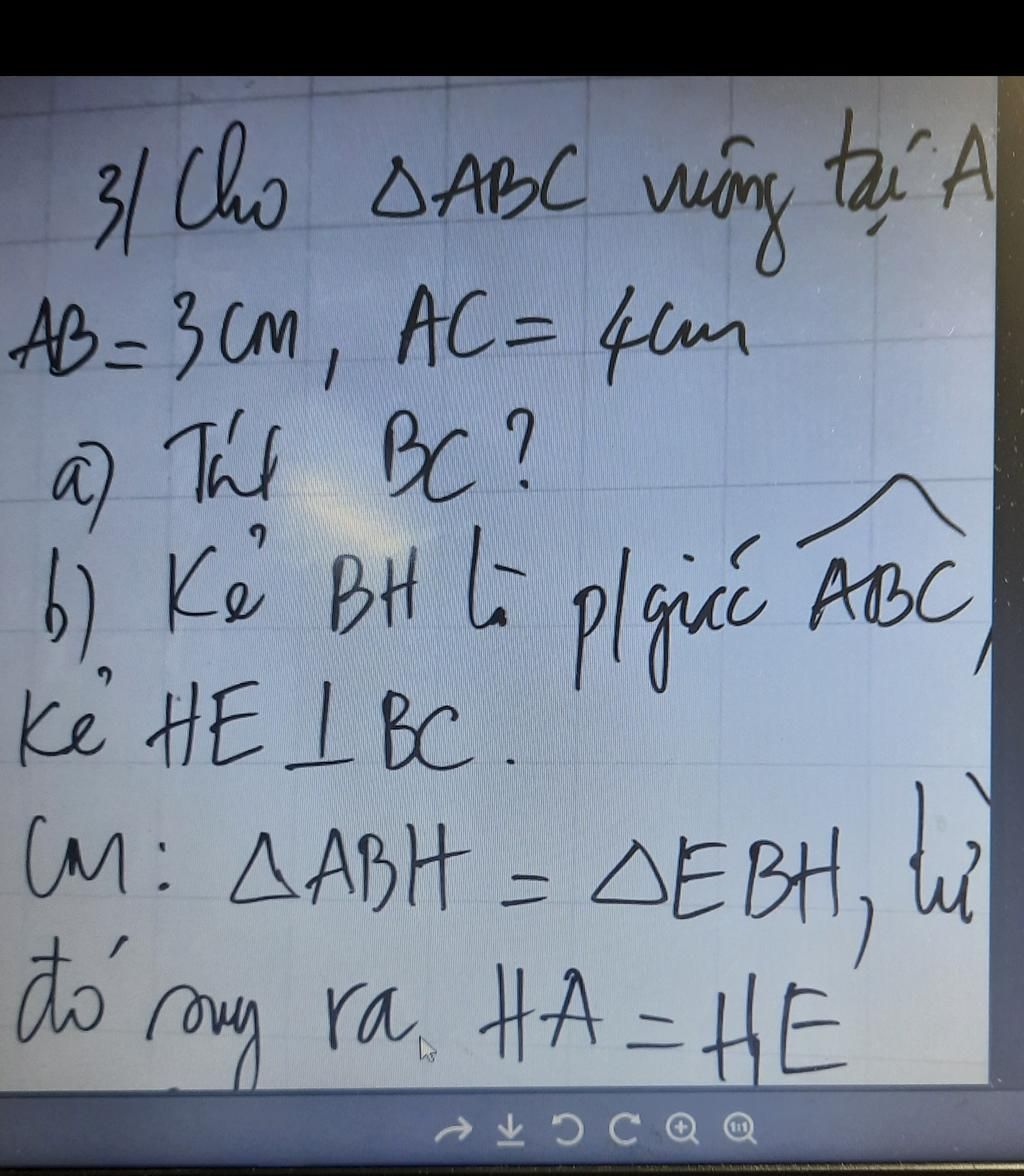 3/ Cho △ABC vuông tại A
AB = 3cm, AC = 4cm
a) Tính BC?
b) Kẻ BH là p/giác ABC,
Kẻ HE ⊥ BC.
CM: △ABH = △EBH, từ
đó suy ra HA = HE
1:1